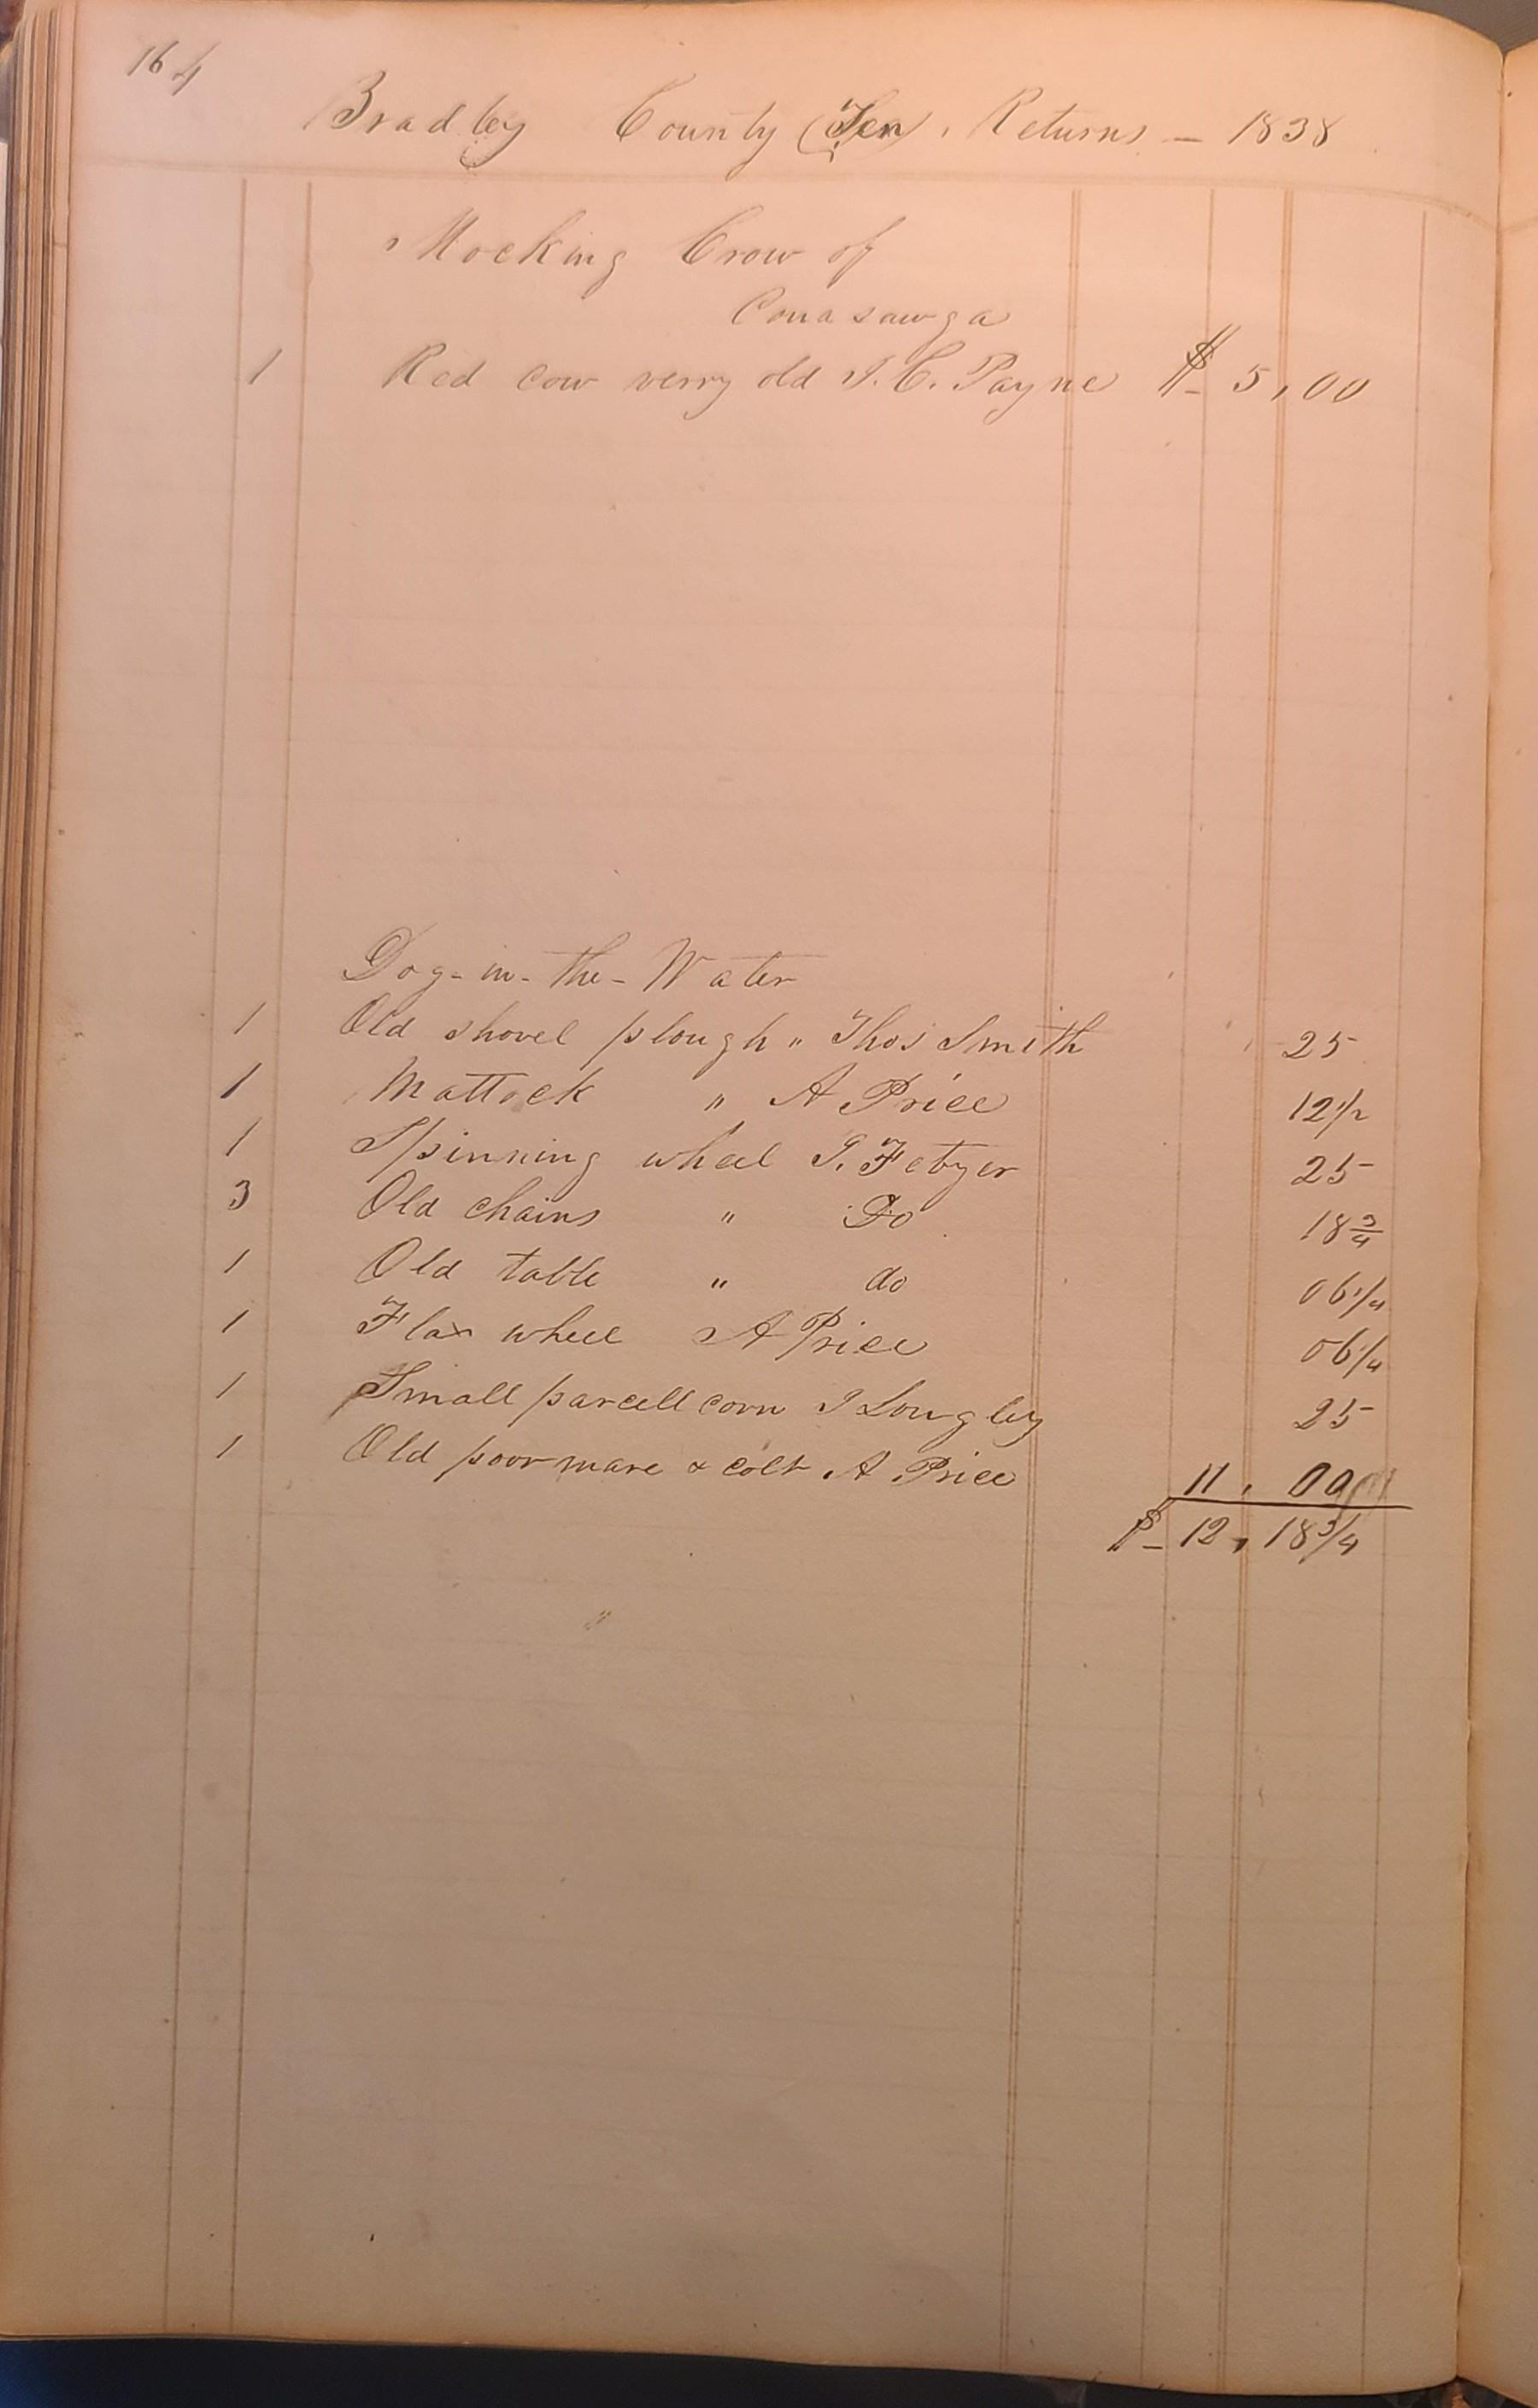 164
Bradley County (Ten). Returns – 1838
Mocking Crow of
Conasawga
1 Red cow verry old I. C. Payne $– 5,00
Dog-in-the-Water
1 Old shovel plough " Thos Smith 25
1 Mattock " A Price 12 1/2
1 Spinning wheel I. Fetzer 25
3 Old chains " Do 18 3/4
1 Old table " do 06 1/4
1 Flax wheel A Price 06 1/4
1 Small parcell corn I Longley 25
1 Old poor mare & colt A Price 11,00
$– 12,18 3/4
"